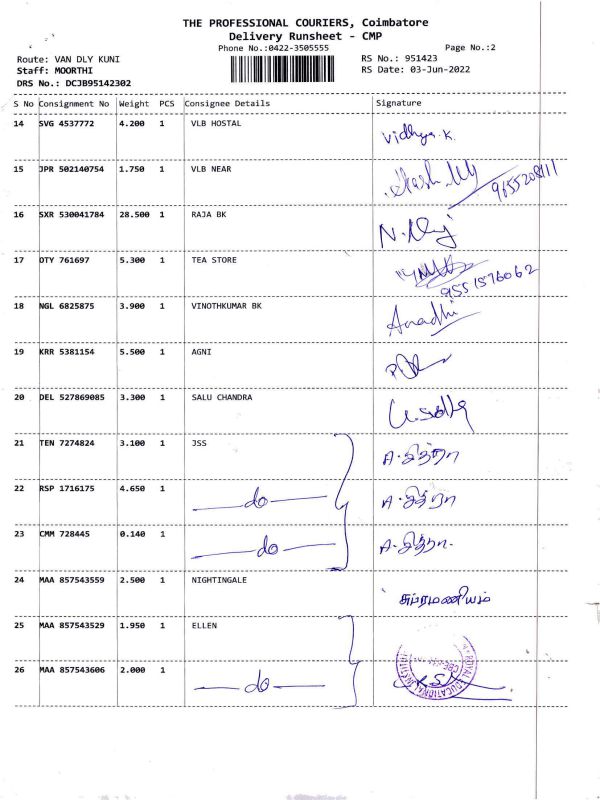 THE PROFESSIONAL COURIERS, Coimbatore
Delivery Runsheet - CMP
Phone No.:0422-3505555
Page No.:2
Route: VAN DLY KUNI
RS No.: 951423
Staff: MOORTHI
RS Date: 03-Jun-2022
DRS No.: DCJB95142302
S No Consignment No Weight PCS Consignee Details Signature
14 SVG 4537772 4.200 1 VLB HOSTAL Vidhya.K.
15 JPR 502140754 1.750 1 VLB NEAR 9655208111
16 SXR 530041784 28.500 1 RAJA BK
17 OTY 761697 5.300 1 TEA STORE
9551576062
18 NGL 6825875 3.900 1 VINOTHKUMAR BK Anadhi
19 KRR 5381154 5.500 1 AGNI
20 DEL 527869085 3.300 1 SALU CHANDRA
21 TEN 7274824 3.100 1 JSS A. சித்ரா
22 RSP 1716175 4.650 1 —do— A. சித்ரா
23 CMM 728445 0.140 1 —do— A. சித்ரா.
24 MAA 857543559 2.500 1 NIGHTINGALE சுப்ரமணியம்
25 MAA 857543529 1.950 1 ELLEN
26 MAA 857543606 2.000 1 —do—